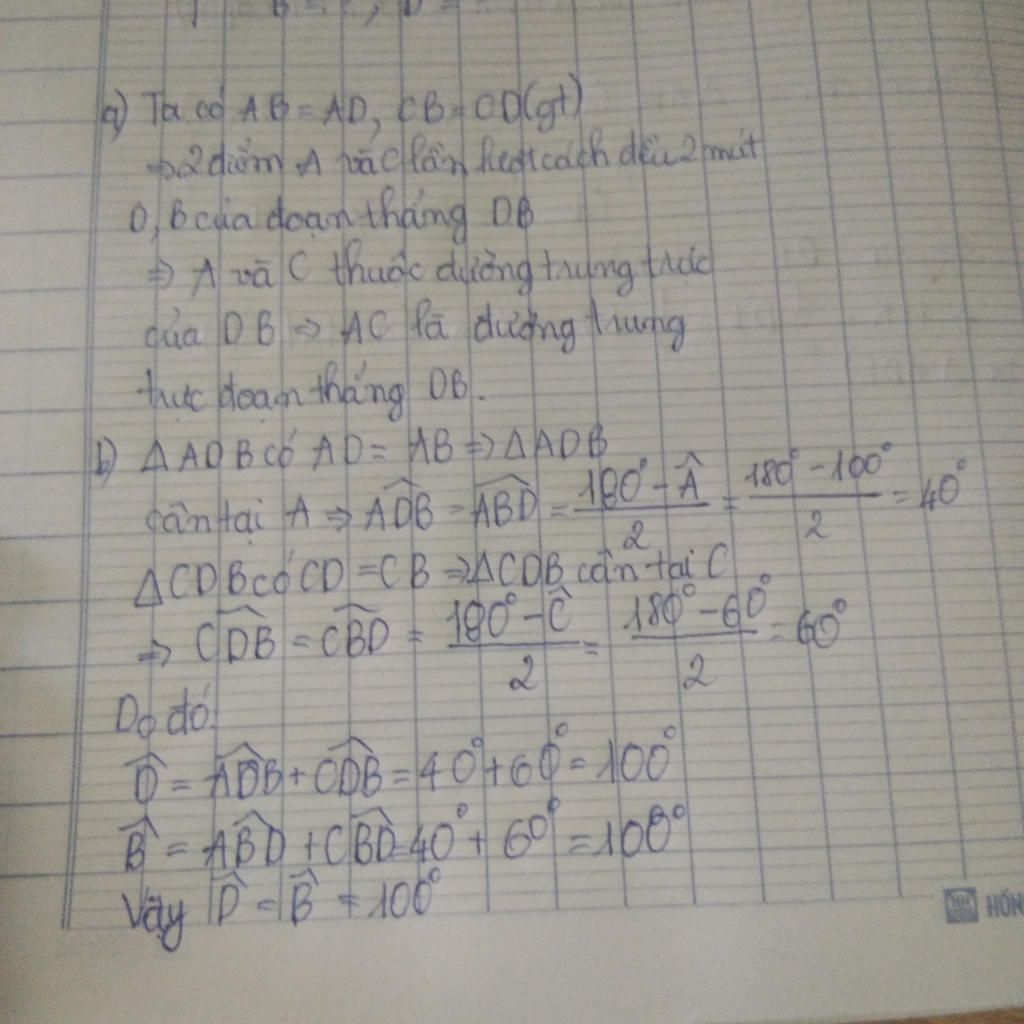 a) Ta có AB = AD, CB = CD(gt)
⇒ 2 điểm A và C lần lượt cách đều 2 mút
D, B của đoạn thẳng DB
⇒ A và C thuộc đường trung trực
của DB ⇒ AC là đường trung
trực đoạn thẳng DB.
b) ΔADB có AD = AB ⇒ ΔADB
cân tại A ⇒ \widehat{ADB} = \widehat{ABD} = \frac{180° - \widehat{A}}{2} = \frac{180° - 100°}{2} = 40°
ΔCDB có CD = CB ⇒ ΔCDB cân tại C
⇒ \widehat{CDB} = \widehat{CBD} = \frac{180° - \widehat{C}}{2} = \frac{180° - 60°}{2} = 60°
Do đó:
\widehat{D} = \widehat{ADB} + \widehat{CDB} = 40° + 60° = 100°
\widehat{B} = \widehat{ABD} + \widehat{CBD} = 40° + 60° = 100°
Vậy \widehat{D} = \widehat{B} = 100°